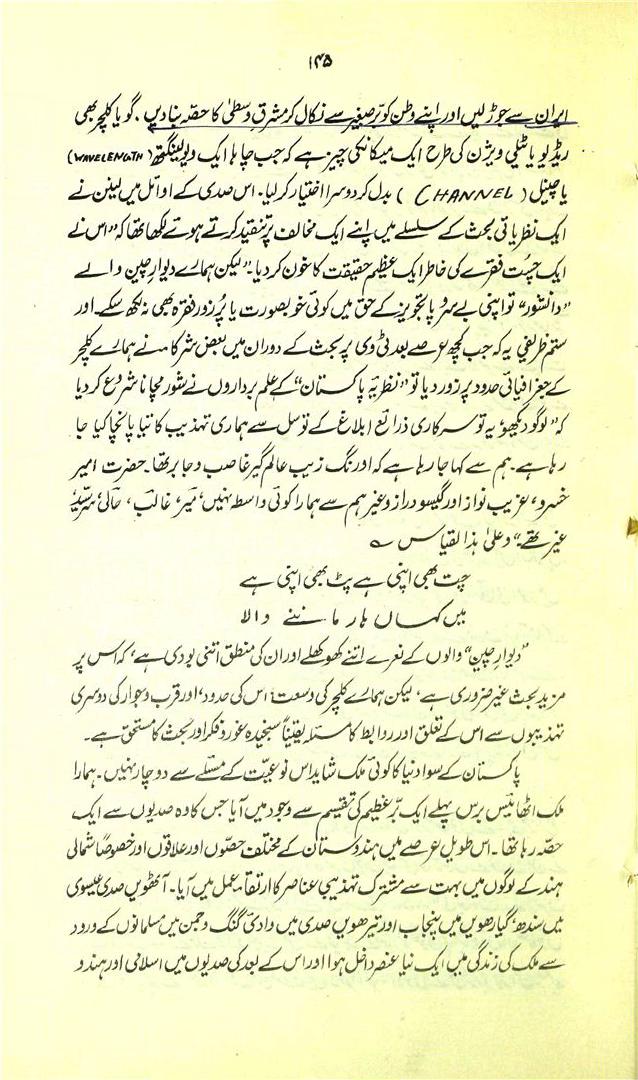 ۱۴۵
ایران سے جوڑ لیں اور اپنے وطن کو برِصغیر سے نکال کر مشرقِ وسطیٰ کا حصّہ بنا دیں۔ گویا کلچر بھی
ریڈیو یا ٹیلی ویژن کی طرح ایک میکانکی چیز ہے کہ جب چاہا ایک ویولینگتھ (WAVELENGTH)
یا چینل (CHANNEL) بدل کر دوسرا اختیار کر لیا۔ اس صدی کے اوائل میں لینن نے
ایک نظریاتی بحث کے سلسلے میں اپنے ایک مخالف پر تنقید کرتے ہوئے لکھا تھا کہ "اس نے
ایک چُست فقرے کی خاطر ایک عظیم حقیقت کا خون کر دیا۔" لیکن ہمارے دیوارِ چین والے
"دانشور" تو اپنی بے سروپا تجویز کے حق میں کوئی خوبصورت یا پُرزور فقرہ بھی نہ لکھ سکے۔ اور
ستم ظریفی یہ کہ جب کچھ عرصے بعد ٹی وی پر بحث کے دوران میں بعض شرکا نے ہمارے کلچر
کے جغرافیائی حدود پر زور دیا تو "نظریۂ پاکستان" کے علم برداروں نے شور مچانا شروع کر دیا
کہ "لوگو دیکھو یہ تو سرکاری ذرائع ابلاغ کے توسل سے ہماری تہذیب کا تیا پانچا کیا جا
رہا ہے۔ ہم سے کہا جا رہا ہے کہ اورنگ زیب عالم گیر غاصب و جابر تھا۔ حضرت امیر
خسرو، غریب نواز اور گیسو دراز وغیرہم سے ہمارا کوئی واسطہ نہیں، میر، غالب، حالی، سرسیّد
غیر تھے۔" وعلیٰ ہذا القیاس ؎
چت بھی اپنی ہے پٹ بھی اپنی ہے
میں کہاں ہار ماننے والا
"دیوارِ چین" والوں کے نعرے اتنے کھوکھلے اور ان کی منطق اتنی بودی ہے، کہ اس پر
مزید بحث غیر ضروری ہے، لیکن ہمارے کلچر کی وسعت، اس کی حدود، اور قرب و جوار کی دوسری
تہذیبوں سے اس کے تعلق اور روابط کا مسئلہ یقیناً سنجیدہ غور و فکر اور بحث کا مستحق ہے۔
پاکستان کے سوا دنیا کا کوئی ملک شاید اس نوعیّت کے مسئلے سے دوچار نہیں۔ ہمارا
ملک اٹھائیس برس پہلے ایک برِّعظیم کی تقسیم سے وجود میں آیا جس کا وہ صدیوں سے ایک
حصّہ رہا تھا۔ اس طویل عرصے میں ہندوستان کے مختلف حصّوں اور علاقوں اور خصوصاً شمالی
ہند کے لوگوں میں بہت سے مشترک تہذیبی عناصر کا ارتقاء عمل میں آیا۔ آٹھویں صدی عیسوی
میں سندھ، گیارھویں میں پنجاب اور تیرھویں صدی میں وادیٔ گنگ و جمن میں مسلمانوں کے ورود
سے ملک کی زندگی میں ایک نیا عنصر داخل ہوا اور اس کے بعد کی صدیوں میں اسلامی اور ہندو